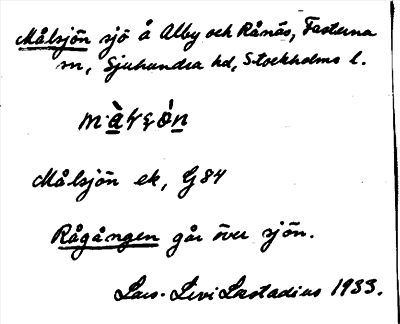 Målsjön sjö å Alby och Rånäs, Fasterna
sn, Sjuhundra hd, Stockholms l.
Målsjön ek, G84
Rågången går över sjön.
Lars-Levi Læstadius 1933.